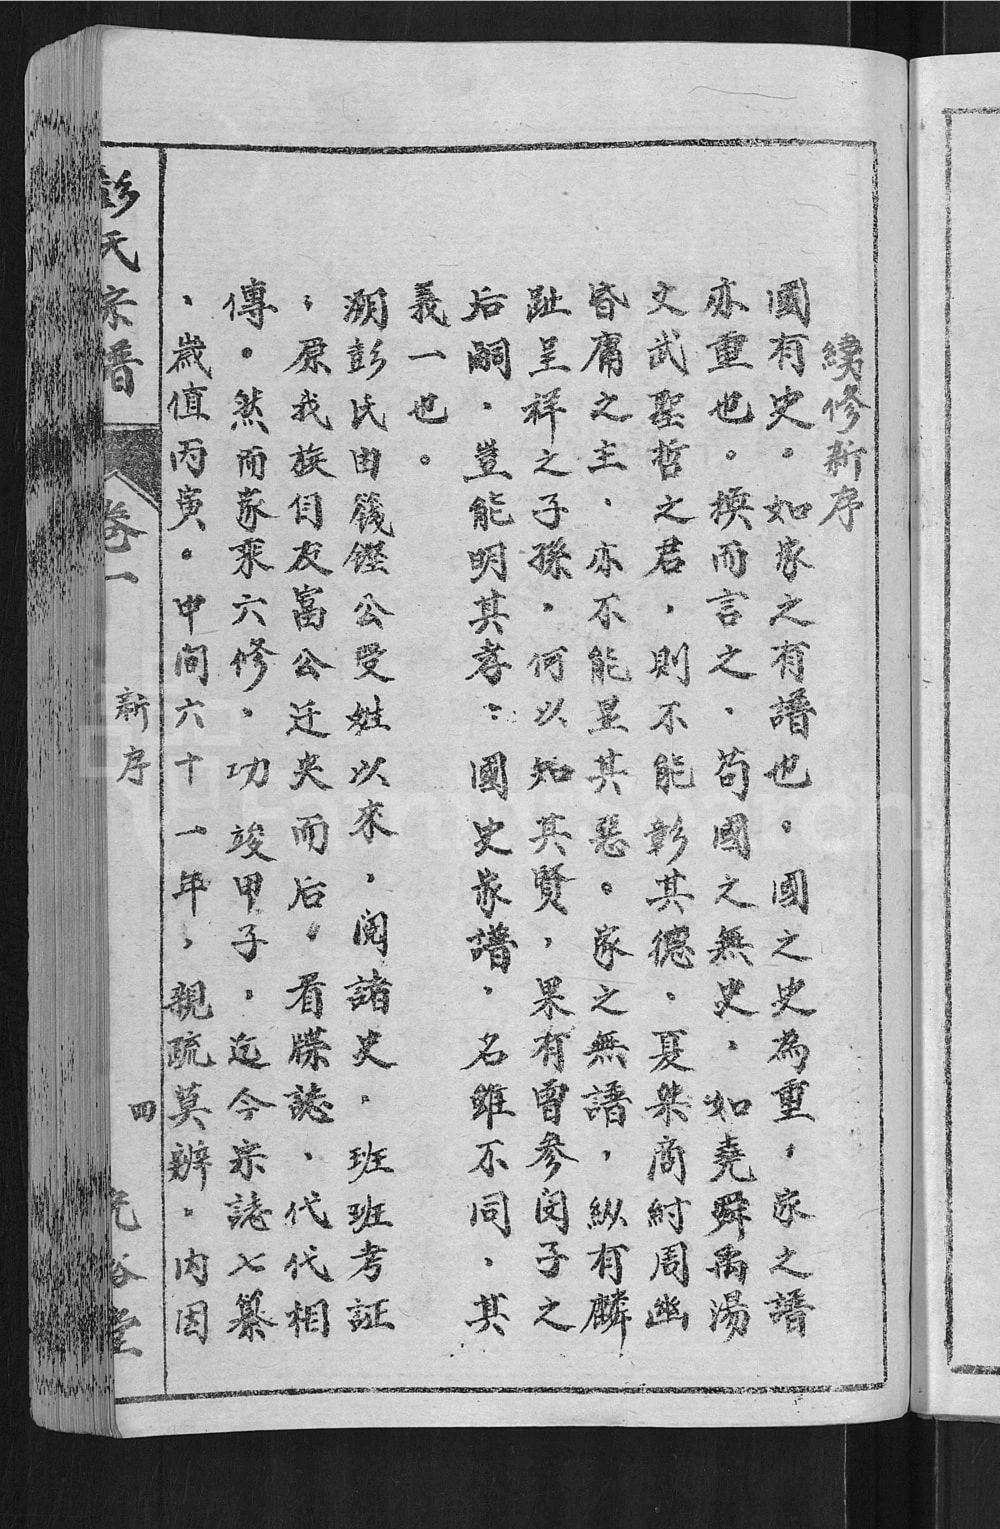 續修新序
國有史。如家之有譜也。國之史為重，家之譜
亦重也。換而言之、苟國之無史、如堯舜禹湯
文武聖哲之君，則不能彰其德、夏桀商紂周幽
昏庸之主、亦不能显其惡。家之無譜，縱有麟
趾呈祥之子孫，何以知其賢，果有曾參闵子之
后嗣、豈能明其孝：國史家譜、名雖不同、其
義一也。
溯彭氏由籛鏗公受姓以來，閲諸史、班班考証
；原我族自友富公迁夾而后，看牒誌、代代相
傳。然而家乘六修，功竣甲子，迄今宗誌七纂
、歲值丙寅。中间六十一年，親疏莫辨。内因
彭氏宗譜
卷一
新序
四
光裕堂